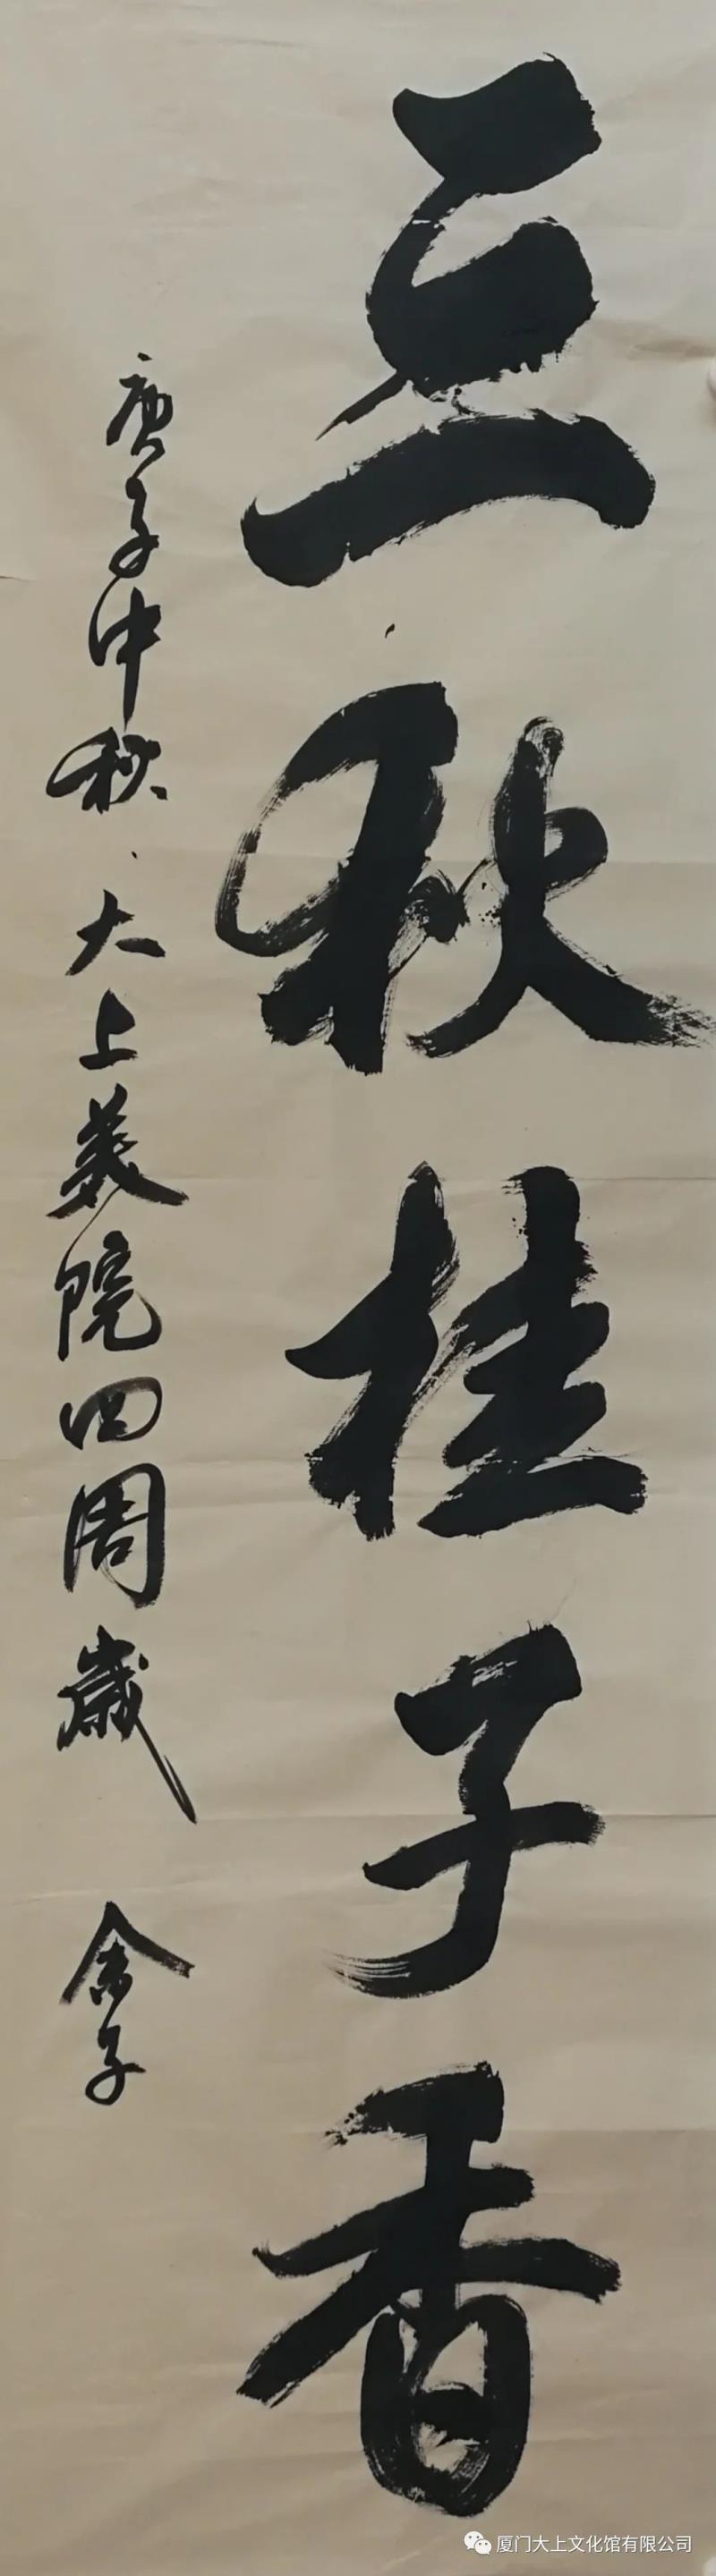 三秋桂子香
庚子中秋大上美院四周歲
金子
厦门大上文化馆有限公司